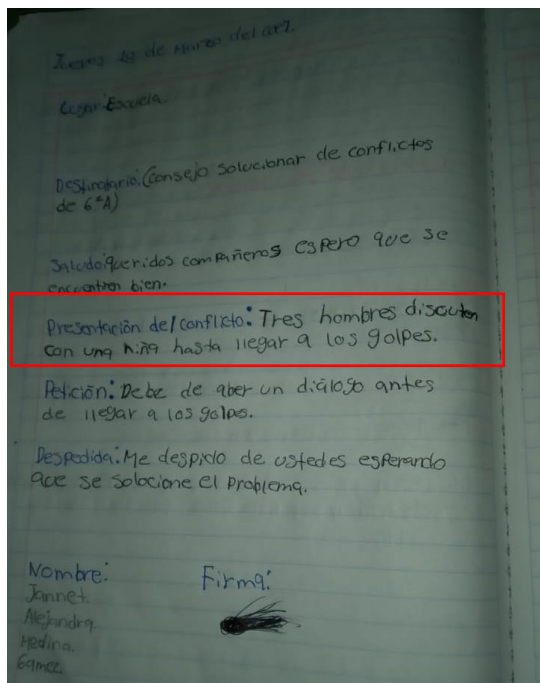 Jueves 18 de Marzo del
Lugar: Escuela.
Destinatario: (Consejo solucionar de conflictos
de 6°A)
Saludo: queridos compañeros espero que se
encuentren bien.
Presentación del conflicto: Tres hombres discuten
con una niña hasta llegar a los golpes.
Petición: Debe de aber un diálogo antes
de llegar a los golpes.
Despedida: Me despido de ustedes esperando
que se solocione el problema.
Nombre: Firma:
Jannet.
Alejandra.
Medina.
Gamez.